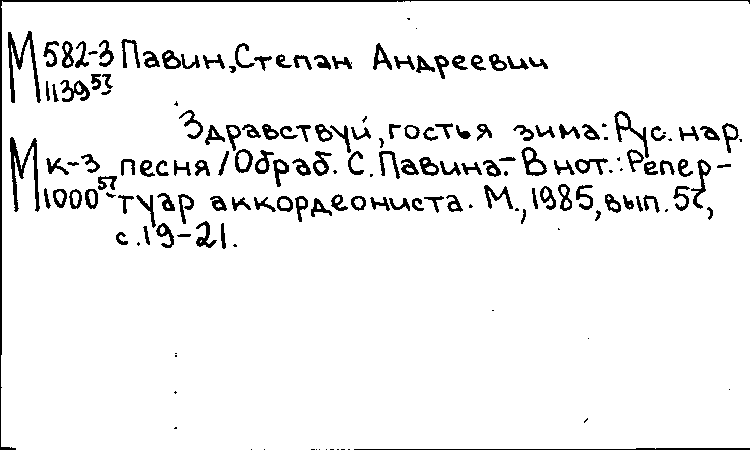 М 582-3 Павин, Степан Андреевич
1139 57
Здравствуй, гостья зима: Рус. нар.
М к-3 песня / Обраб. С. Павина.- В нот.: Репер-
1000 57 туар аккордеониста. М., 1985, вып. 57,
с. 19-21.